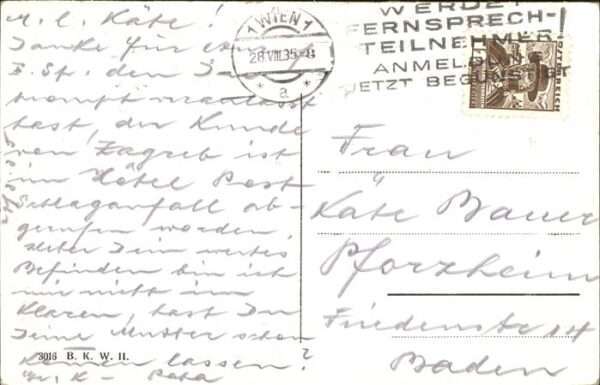 M. l. Käte!
Danke für
E. Sp. den
prompt veranlasst
hast, der Kunde
von Zagreb ist
im Hôtel Post
Schlaganfall ab-
gerufen worden.
Ueber Dein wertes
Befinden bin ich
mir nicht im
Klaren, hast Du
Deine Mutter schon
kommen lassen?
3016 B. K. W. II.
1 WIEN 1
28.VIII.35-8
a
WERDET
FERNSPRECH-
TEILNEHMER!
ANMELDUNG
JETZT BEGÜNSTIGT
Frau
Käte Bauer
Pforzheim
Friedenstr 14
Baden